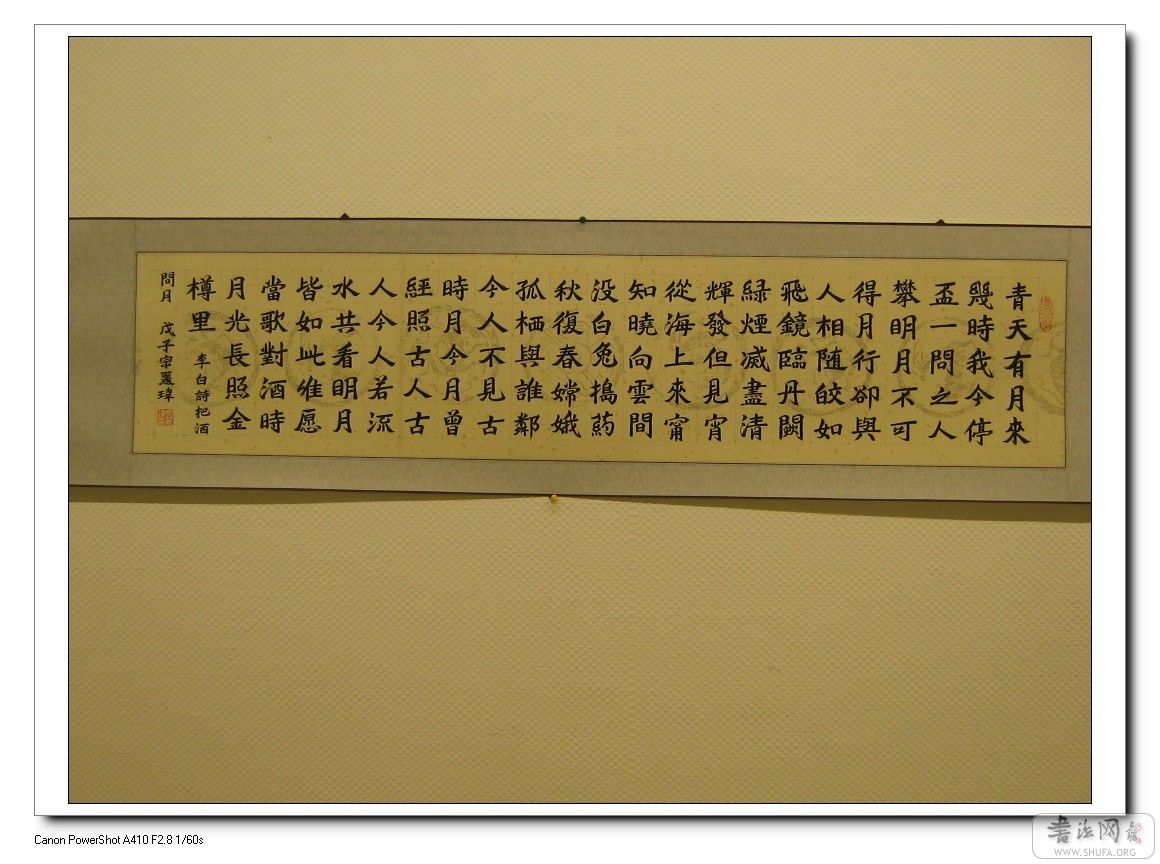 青天有月來
幾時我今停
盃一問之人
攀明月不可
得月行卻與
人相随皎如
飛鏡臨丹闕
緑煙滅盡清
輝發但見宵
從海上來甯
知曉向雲間
没白兔搗葯
秋復春嫦娥
孤栖與誰鄰
今人不見古
時月今月曾
經照古人古
人今人若流
水共看明月
皆如此惟愿
當歌對酒時
月光長照金
樽里 李白詩把酒
問月 戊子宗麗瑋
Canon PowerShot A410 F2.8 1/60s
書法网
WWW.SHUFA.ORG